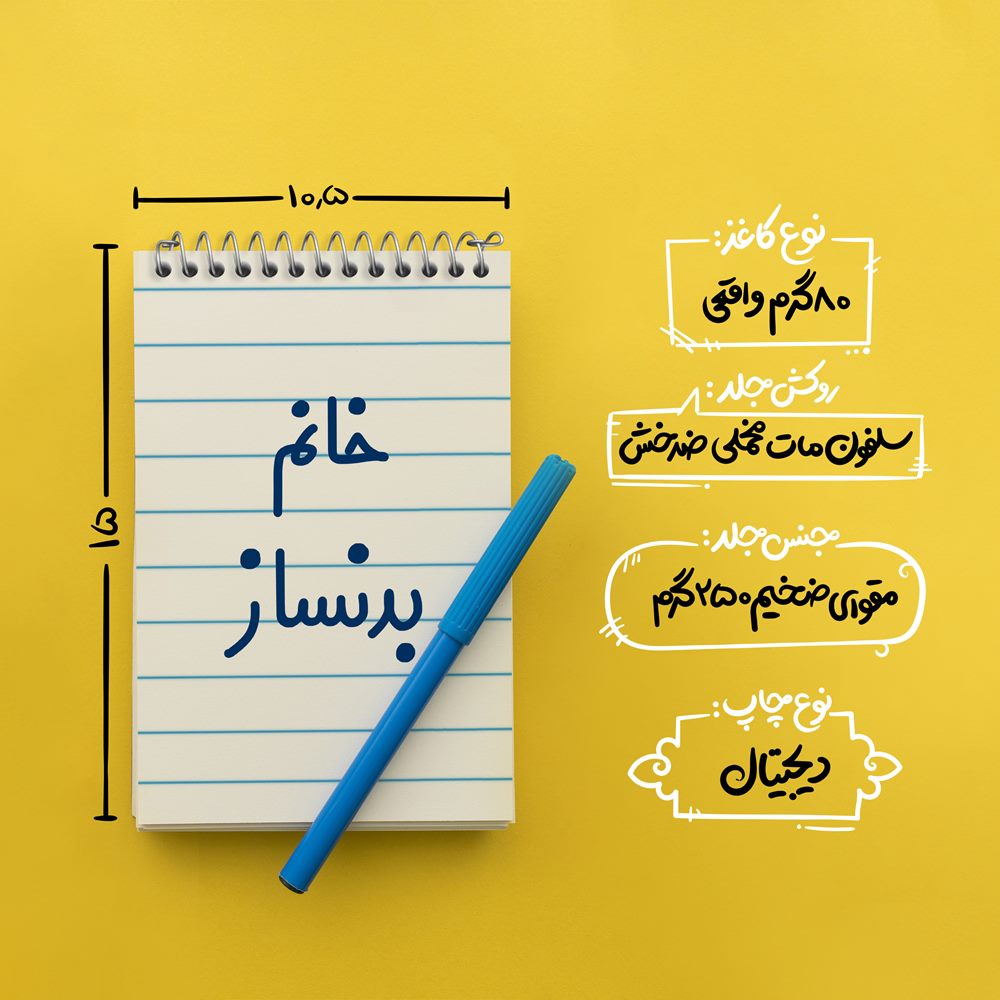 ۱۰٫۵
۱۵
خانم
بدنساز
نوع کاغذ:
۸۰گرم واقعی
روکش جلد:
سلفون مات مخملی ضدخش
جنس جلد:
مقوای ضخیم ۲۵۰گرم
نوع چاپ:
دیجیتال